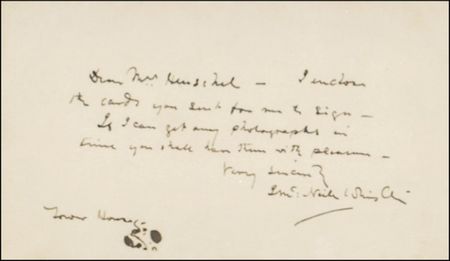 Dear Mrs Henschel — I enclose
the cards you sent for me to sign —
If I can get any photographs in
time you shall have them with pleasure —
Very sincerely
J. McNeill Whistler
Tower House